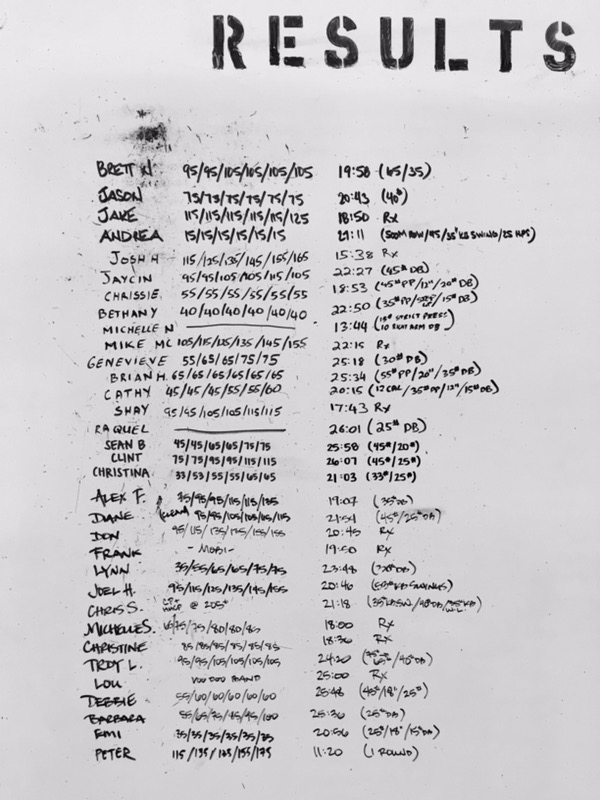 RESULTS
BRETT N. 95/95/105/105/105/105 19:58 (65/35)
JASON 75/75/75/75/75/75 20:43 (40#)
JAKE 115/115/115/115/115/125 18:50 Rx
ANDREA 15/15/15/15/15/15 21:11 (500M ROW/45/35# KB SWING/25 HPS)
JOSH H 115/125/135/145/155/165 15:38 Rx
JAYCIN 95/95/105/105/115/105 22:27 (45# DB)
CHRISSIE 55/55/55/55/55/55 18:53 (45# PP/12"/20# DB)
BETHANY 40/40/40/40/40/40 22:50 (35# PP/ /15# DB)
MICHELLE N 13:44 (15# STRICT PRESS/ 10 RIGHT ARM DB)
MIKE MC 105/115/125/135/145/155 22:15 Rx
GENEVIEVE 55/65/65/75/75 25:18 (30# DB)
BRIAN H. 65/65/65/65/65/65 25:34 (55# PP/20"/35# DB)
CATHY 45/45/45/55/55/60 20:15 (12 CAL/35# PP/12"/15# DB)
SHAY 95/95/105/105/115/115 17:43 Rx
RAQUEL 26:01 (25# DB)
SEAN B. 45/45/65/65/75/75 25:58 (45#/20#)
CLINT 75/75/95/95/115/115 26:07 (45#/25#)
CHRISTINA 33/53/55/55/65/65 21:03 (33#/25#)
ALEX F. 75/95/95/115/115/135 19:07 (35# DB)
DIANE 95/95/105/105/65/115 21:54 (45#/25# DB)
DON 95/115/135/175/155/155 20:45 Rx
FRANK - MOBI - 19:50 Rx
LYNN 35/55/65/65/75/75 23:48 (30# DB)
JOEL H. 95/115/125/135/145/155 20:46 (53# KB SWINGS)
CHRIS S. @ 205# 21:18 (35# KBSW/40# DB/
MICHELLE S. 65/75/75/80/80/85 18:00 Rx
CHRISTINE 85/85/85/85/85/85 18:36 Rx
TROY L. 95/95/105/105/105/105 24:20 /40# DB)
LOU VOO DOO BAND 25:00 Rx
DEBBIE 55/60/60/60/60/60 25:48 (45#/18"/25#)
BARBARA 55/65/75/95/95/100 25:36 (25# DB)
EMI 35/35/35/35/35/35 20:56 (25#/18"/15# DB)
PETER 115/135/135/155/175 11:20 (1 ROUND)